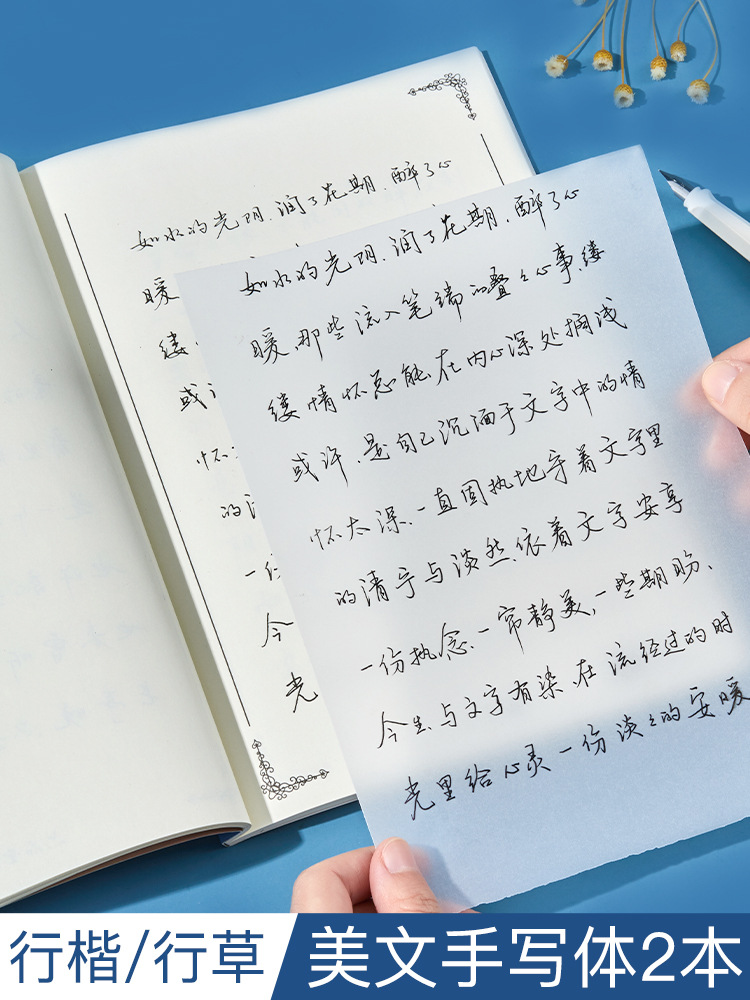 如水的光阴,润了花期,醉了心
暖
缕
或
怀
的
一
今
光
如水的光阴,润了花期,醉了心
暖,那些流入笔端的叠々心事,缕
缕情怀总能在内心深处搁浅
或许,是自己沉湎于文字中的情
怀太深,一直固执地守着文字里
的清宁与淡然,依着文字安享
一份执念,一帘静美,一些期盼、
今生,与文字有染,在流经过的时
光里给心灵一份淡々的安暖
行楷/行草 美文手写体2本